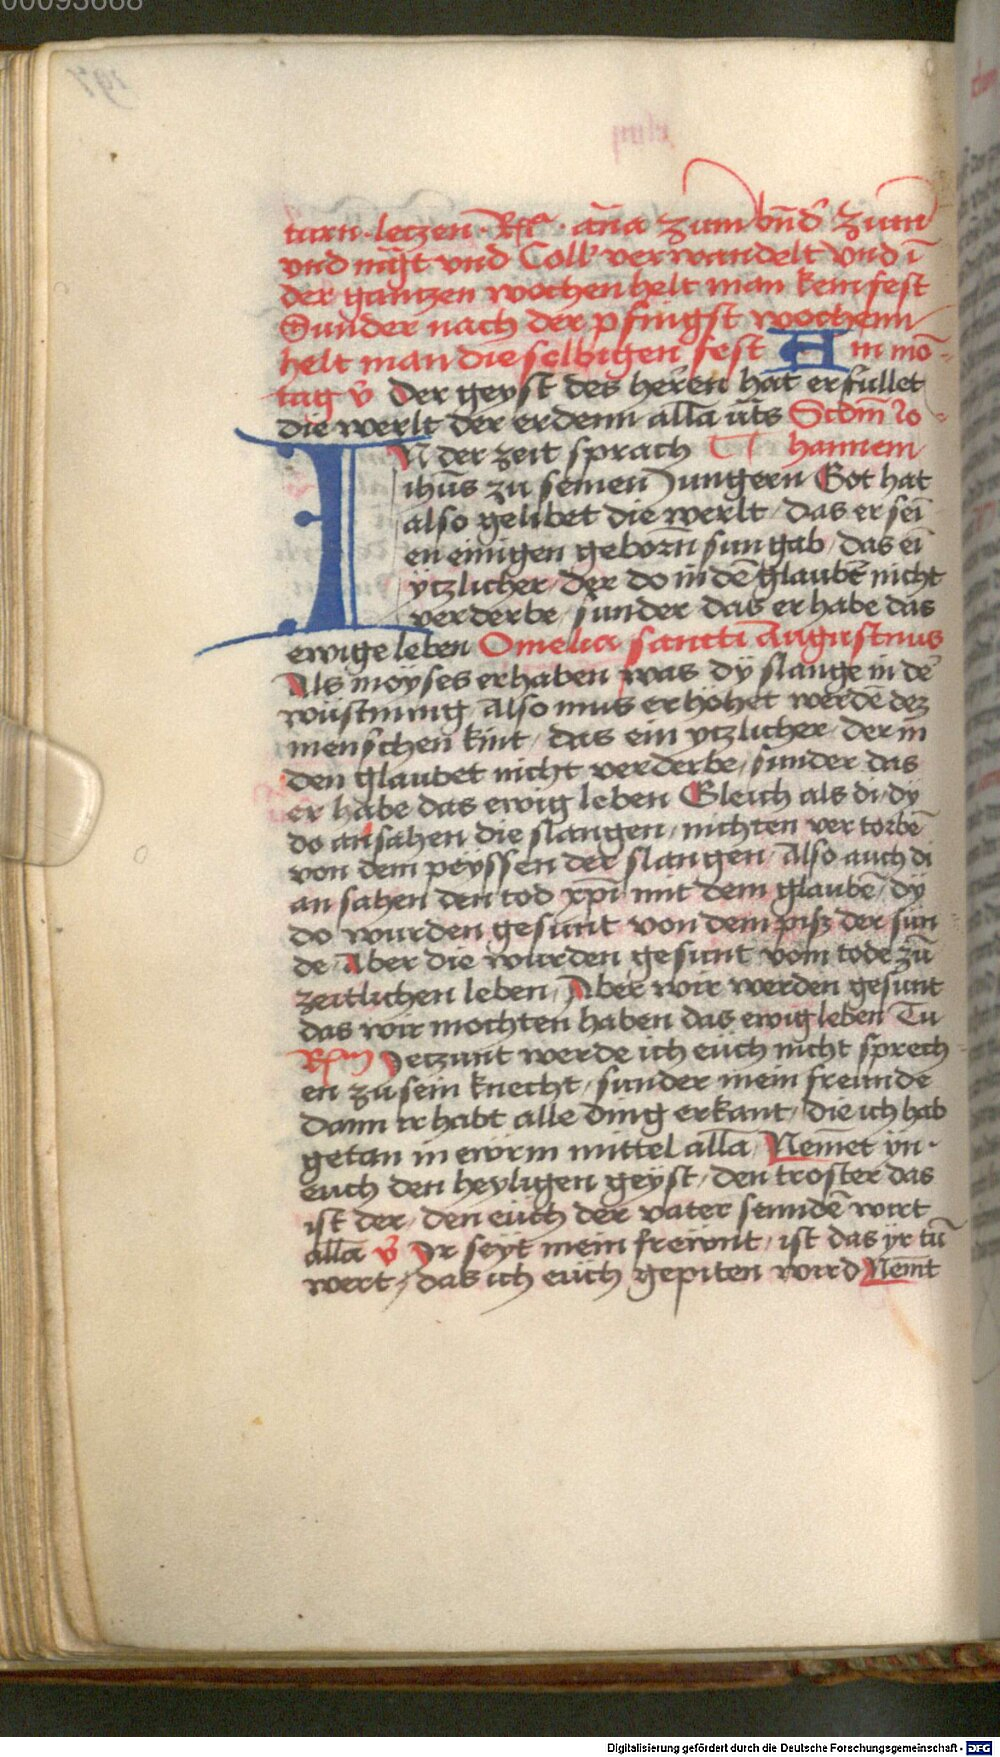 00093668
turn· leczen· Rſſ· an̄a zum bn̄d' zum
vnd mg̅t vnd Coll' verwandelt vnd ī
der gantzen wochen helt man kein fest
Sunder nach der pfingst wochenn
helt man die selbigen fest Am mō-
tag v̄ Der geyst des herren hat erfullet
die werlt der erdenn alla ūts Scdm̄ Jo-
IN der zeit sprach hannem
ih̄us zu seinen Jungern Got hat
also gelibet die werlt / das er sei
en einigen geborn̄ sun gab / das ei
ytzlicher / der do in dē glaubt̄ nicht
verderbe / sunder das er habe das
ewige leben Omelia sancti Augustinus
Als moyses erhaben was dÿ slange in de
wüstnung / Also mus erhöhet werdē dez
menschen kint / das ein ytzlicher / der in
den glaubet nicht verderbe / sunder das
er habe das ewig leben Gleich als di / dÿ
do an sahen die slangen / nichten vertorbē
von dem peyssen der slangen / Also auch di
an sahen den tod xp̄i mit dem glaubē / dÿ
do wurden gesunt von dem pisz der sün
de / Aber die wurden gesunt vom tode zū
zeitlichen leben / Aber wir werden gesunt
das wir mochten haben das ewig leben Tu
Rſm Jetzunt werde ich euch nicht sprech-
en zu sein knecht / sunder mein freunde
dann ir habt alle ding erkant / die ich hab
getan in ewrm mittel alla / Nemet yn·
euch den heyligen geyst / den troster das
ist der / den euch der vater sendē wirt
alla v̄ Ir seyt mein frewnt / ist das yr tū
wert / das ich euch gepiten wird Nem̄t
Digitalisierung gefördert durch die Deutsche Forschungsgemeinschaft - DFG